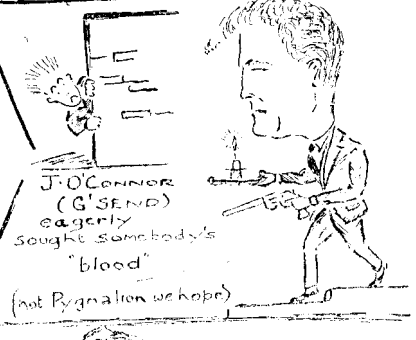 J. O'CONNOR
(G'SEND)
eagerly
sought somebody's
"blood"
(not Pygmalion we hope)